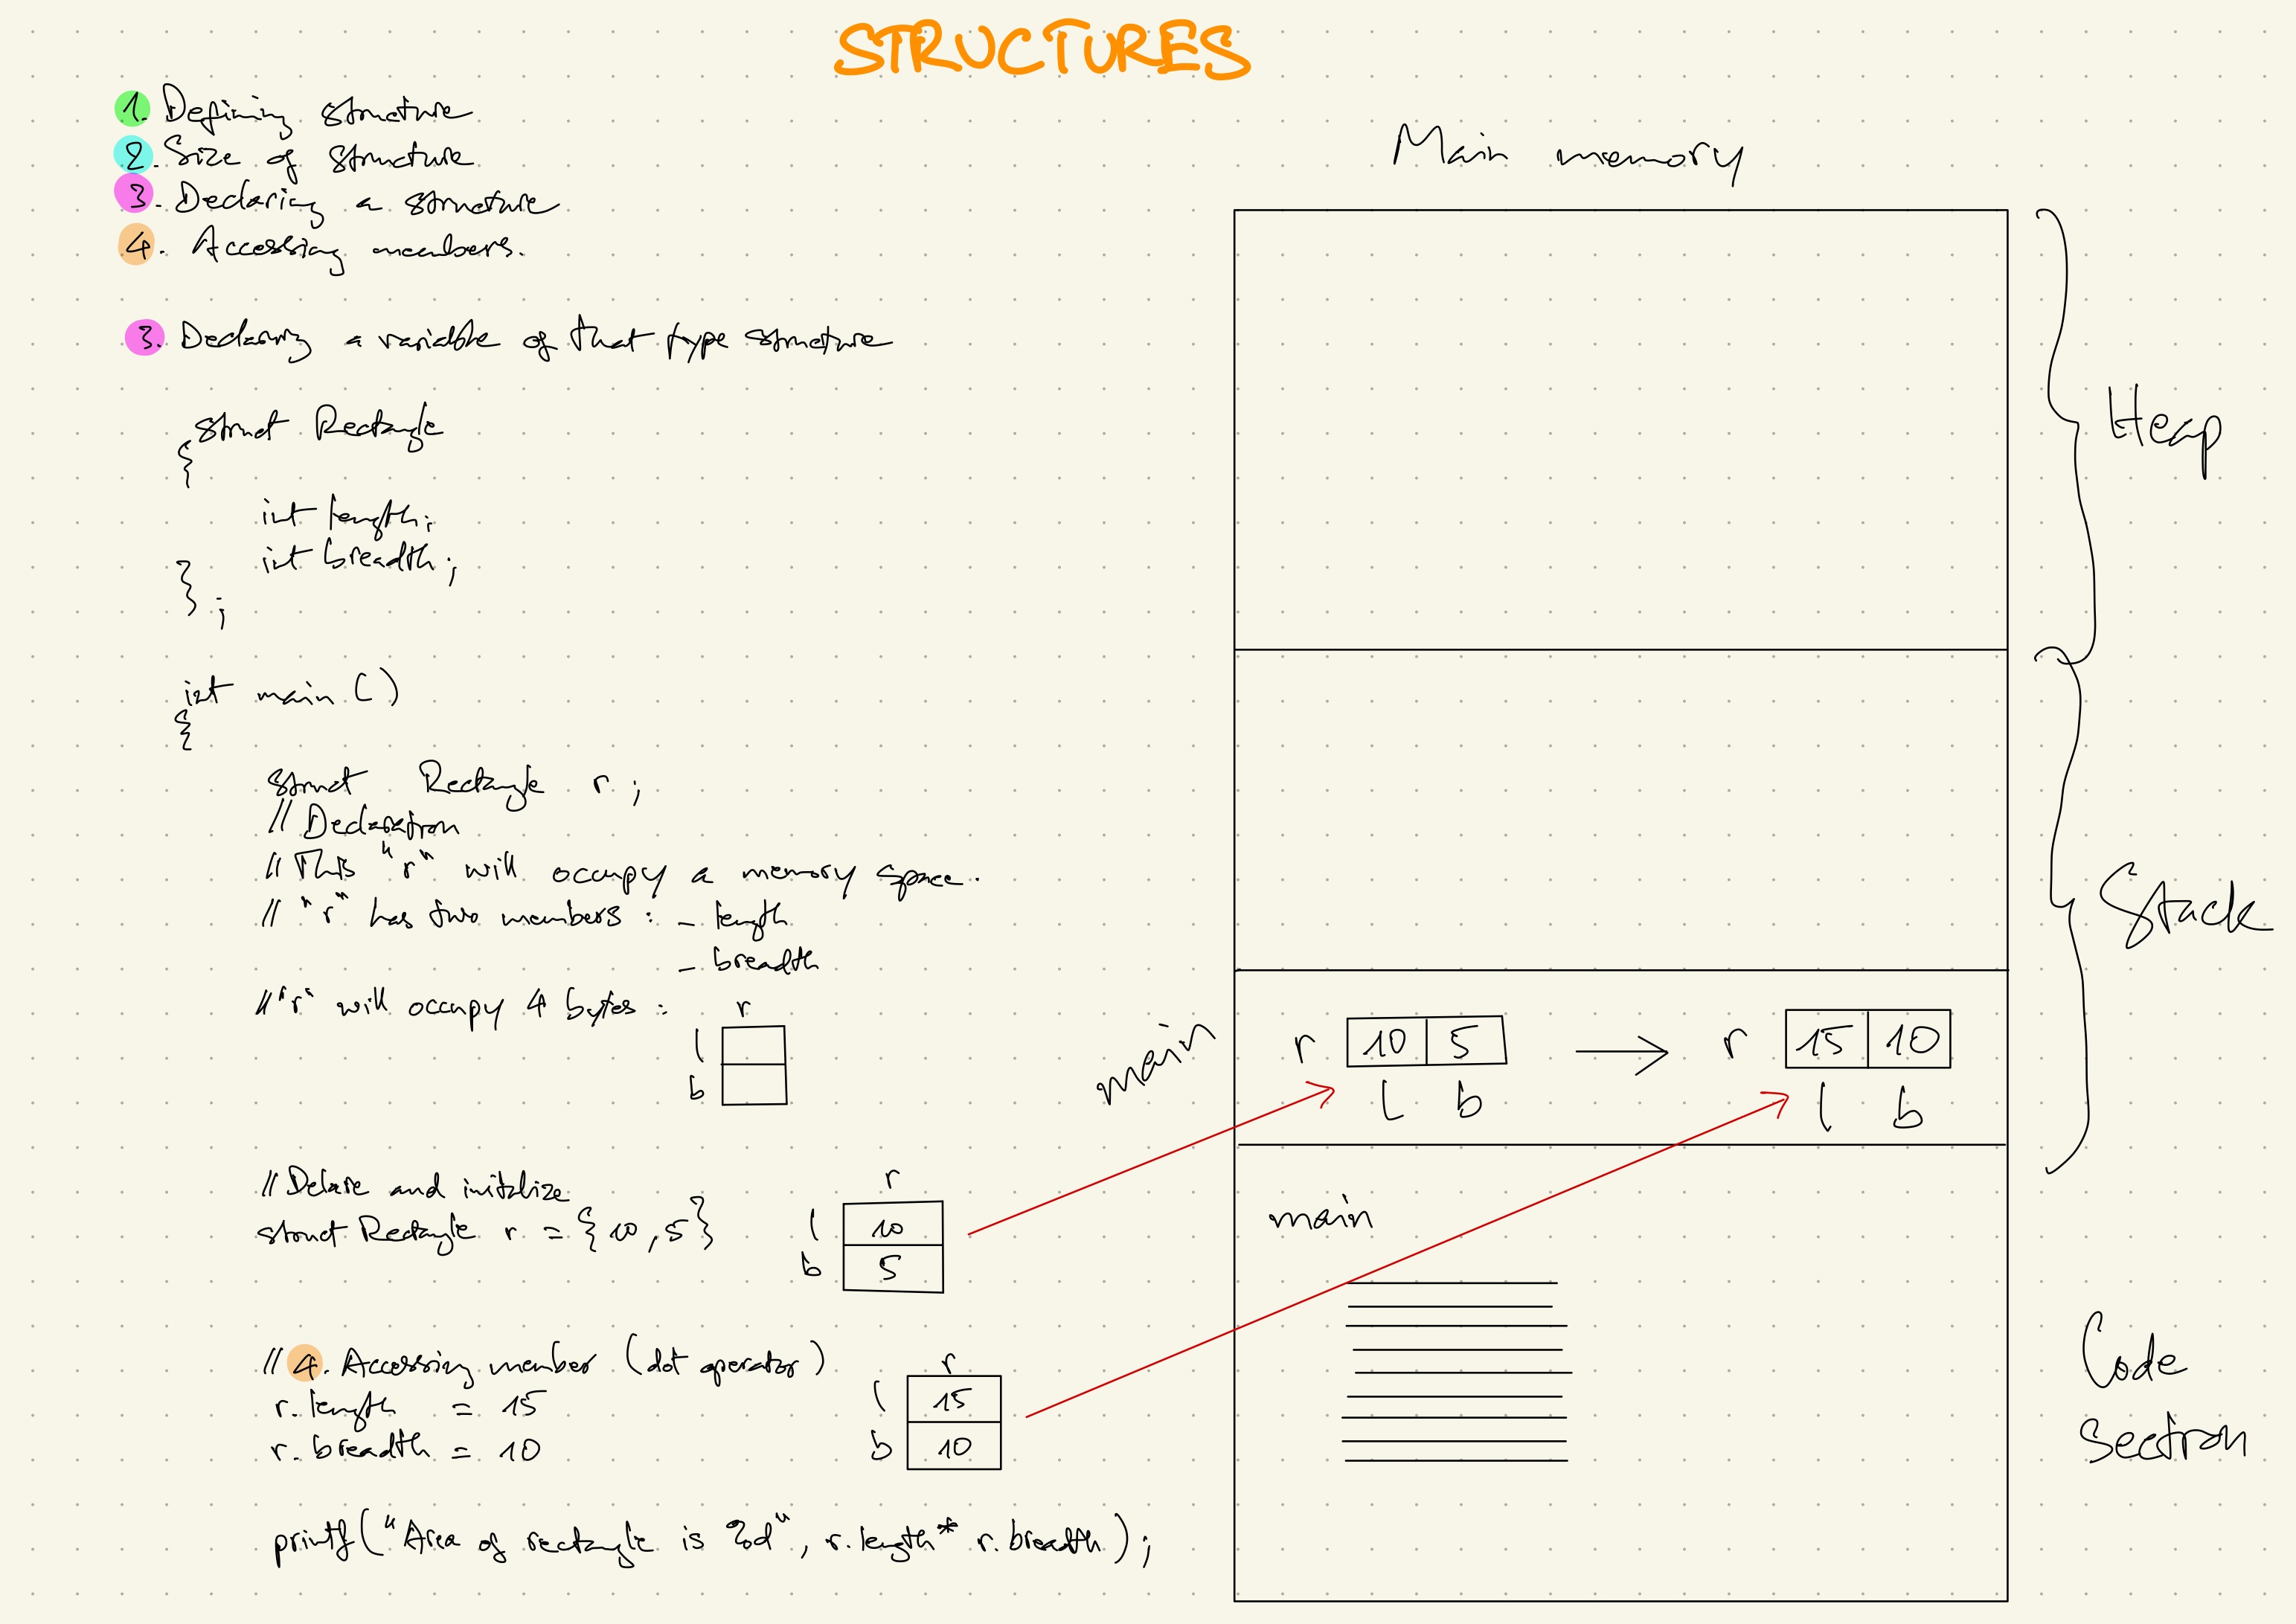 STRUCTURES
1. Defining structure
2. Size of structure
3. Declaring a structure
4. Accessing members.
3. Declaring a variable of that type structure
struct Rectangle
{
int length;
int breadth;
};
int main ()
{
struct Rectangle r ;
// Declaration
// This "r" will occupy a memory space.
// "r" has two members : - length
- breadth
// "r" will occupy 4 bytes :
r
l
b
// Delare and initalize
struct Rectangle r = {10, 5}
r
l 10
b 5
// 4. Accessing member (dot operator)
r.length = 15
r.breadth = 10
r
l 15
b 10
printf("Area of rectangle is %d", r.length* r.breadth);
Main memory
Heap
Stack
main
r 10 5 → r 15 10
l b l b
main
Code
Section